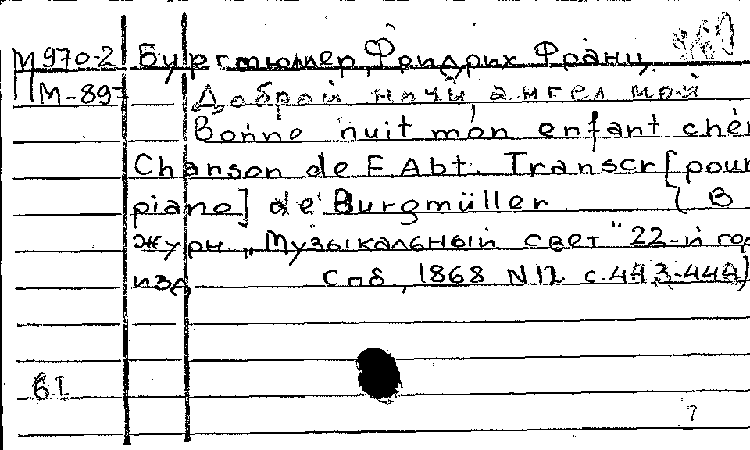 М970-2 Бургмюллер, Фридрих Франц
М-89 Доброй ночи, ангел мой
Bonne nuit mon enfant chéri
Chanson de F. Abt. Transcr[pour
piano] de Burgmüller ( В
журн. "Музыкальный свет" 22-й год
изд. Спб, 1868 N 12 с. 443-444)
61
?